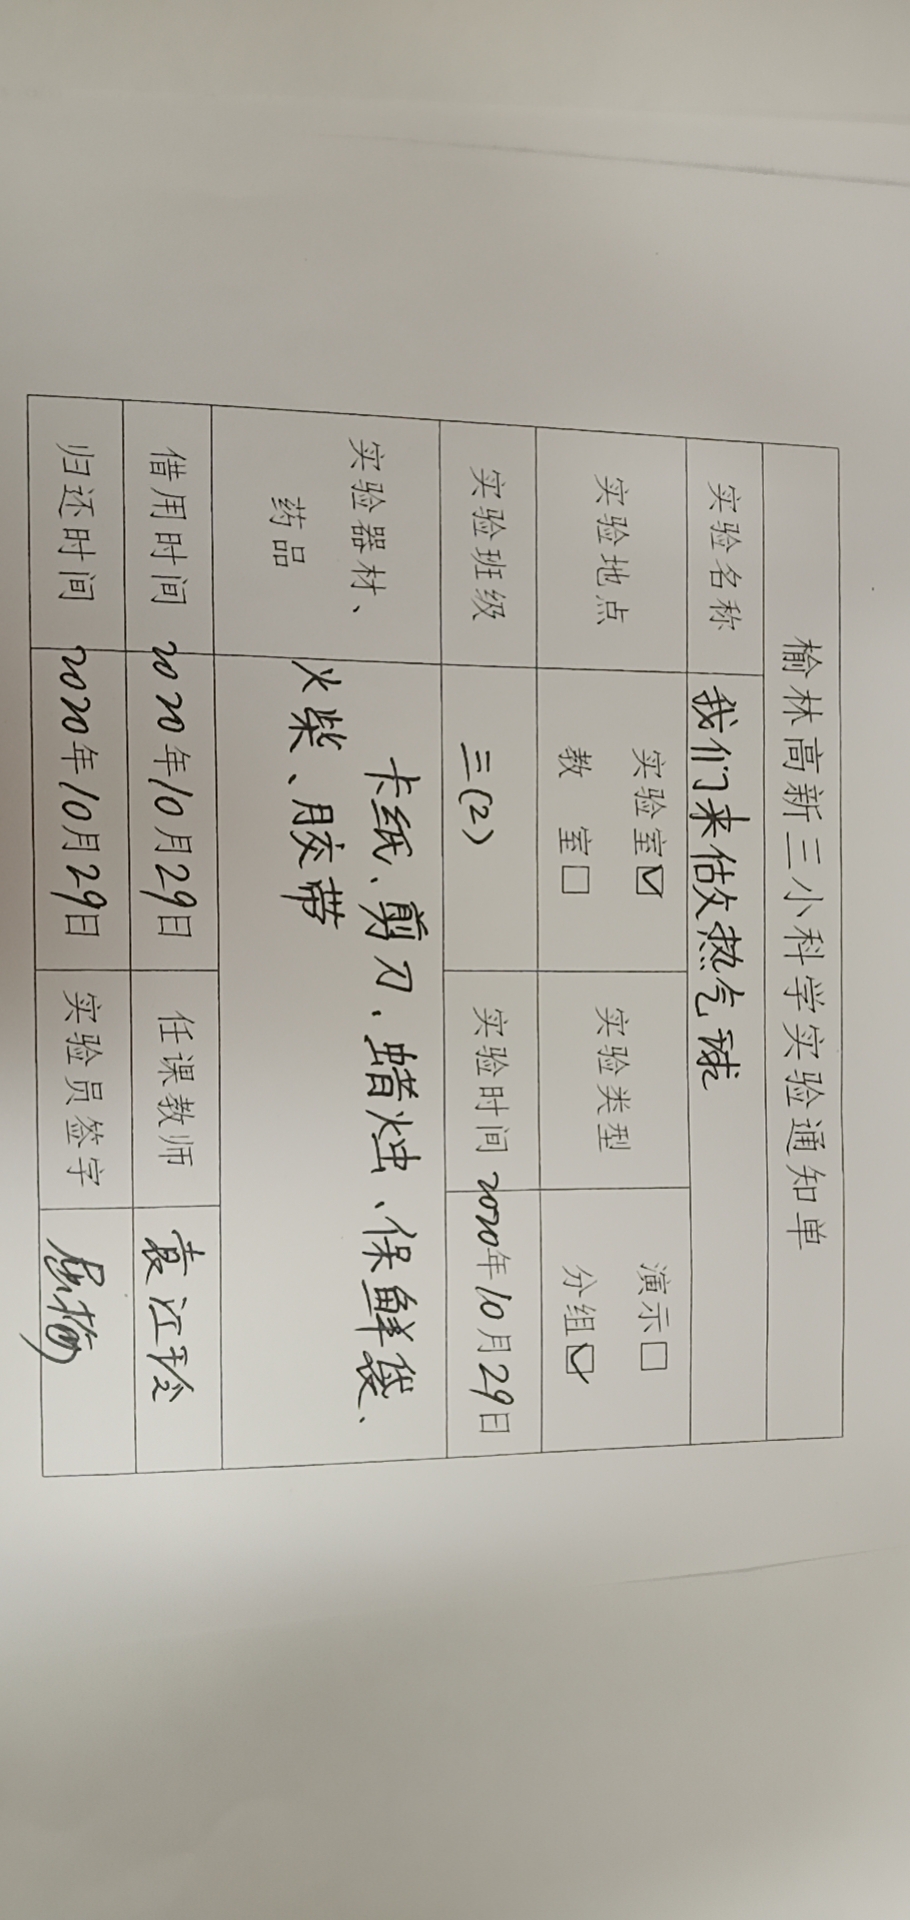 榆林高新三小科学实验通知单
实验名称 我们来做热气球
实验地点 实验室☑ 教 室□ 实验类型 演示□ 分组☑
实验班级 三(2) 实验时间 2020年10月29日
实验器材、药品 卡纸、剪刀、蜡烛、保鲜袋、
火柴、胶带
借用时间 2020年10月29日 任课教师 袁江玲
归还时间 2020年10月29日 实验员签字